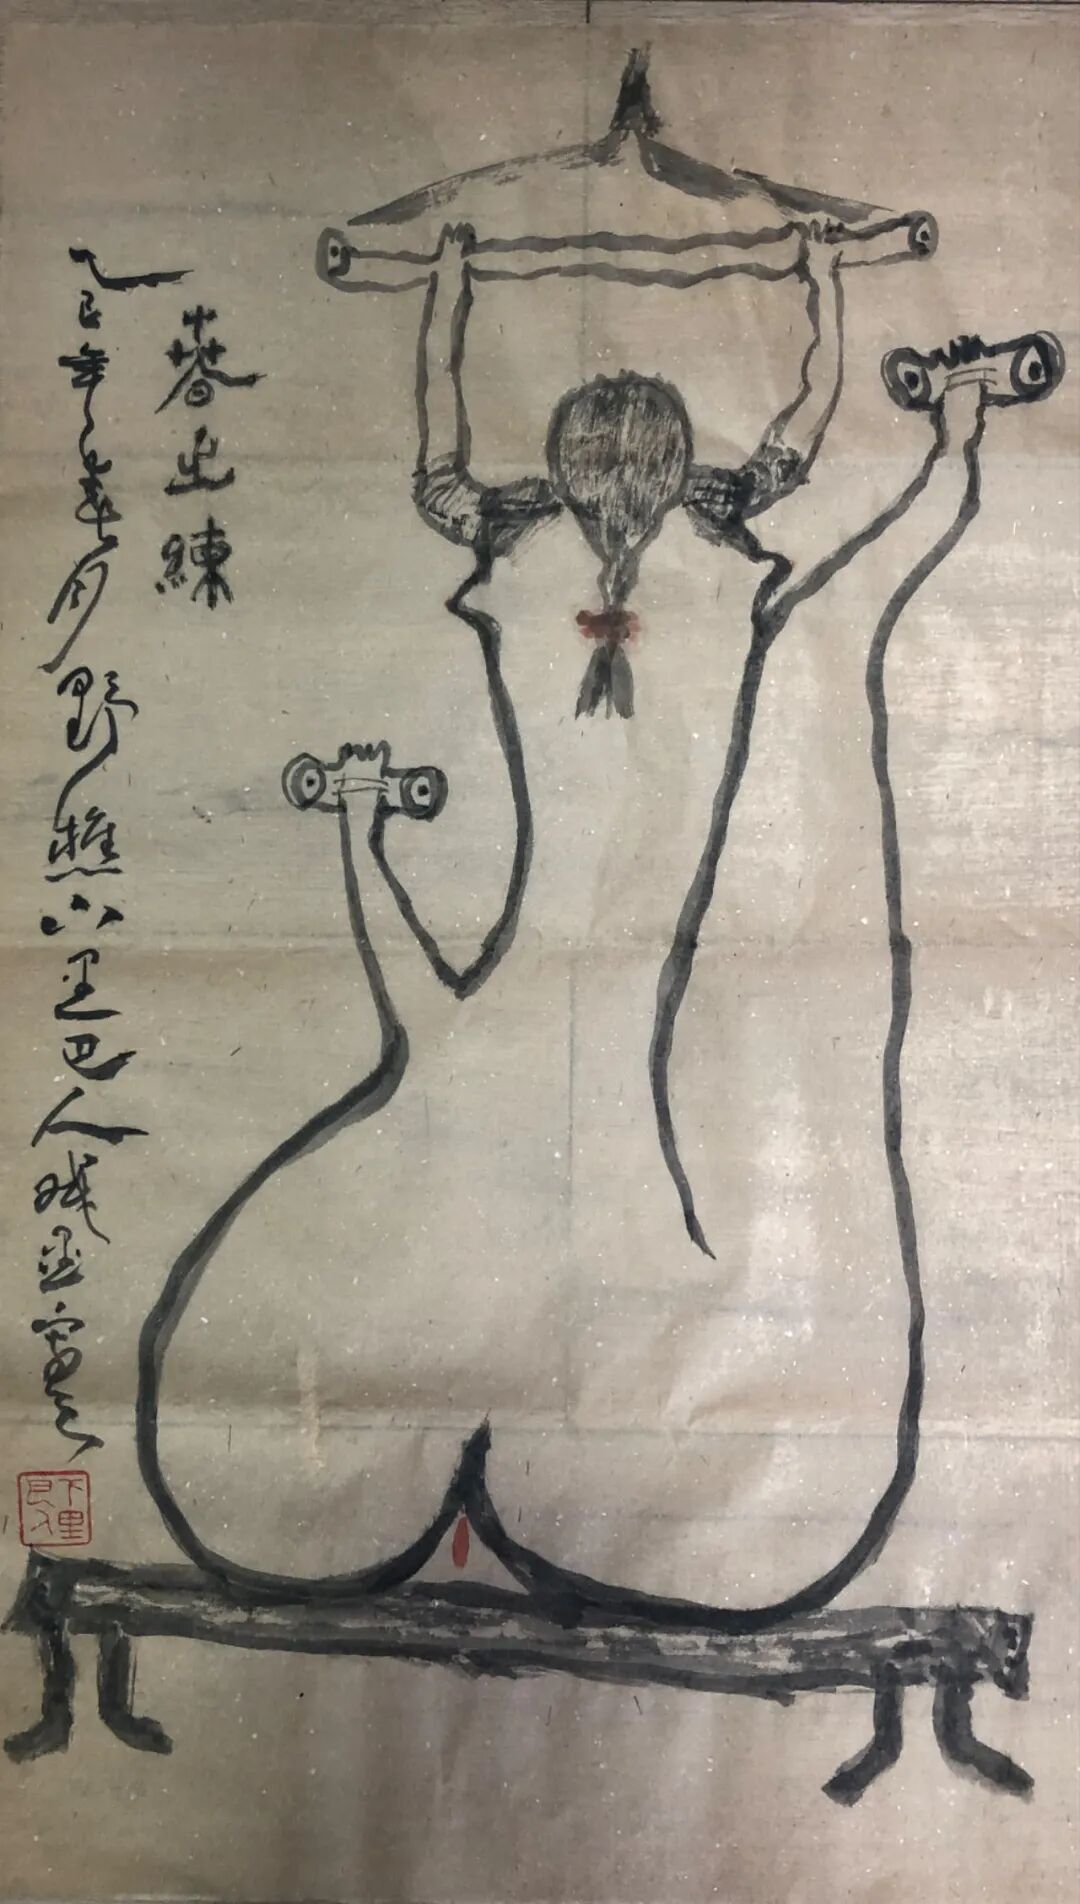 春之練
乙巳年春月野樵下里巴人戏墨寫之
下里巴人